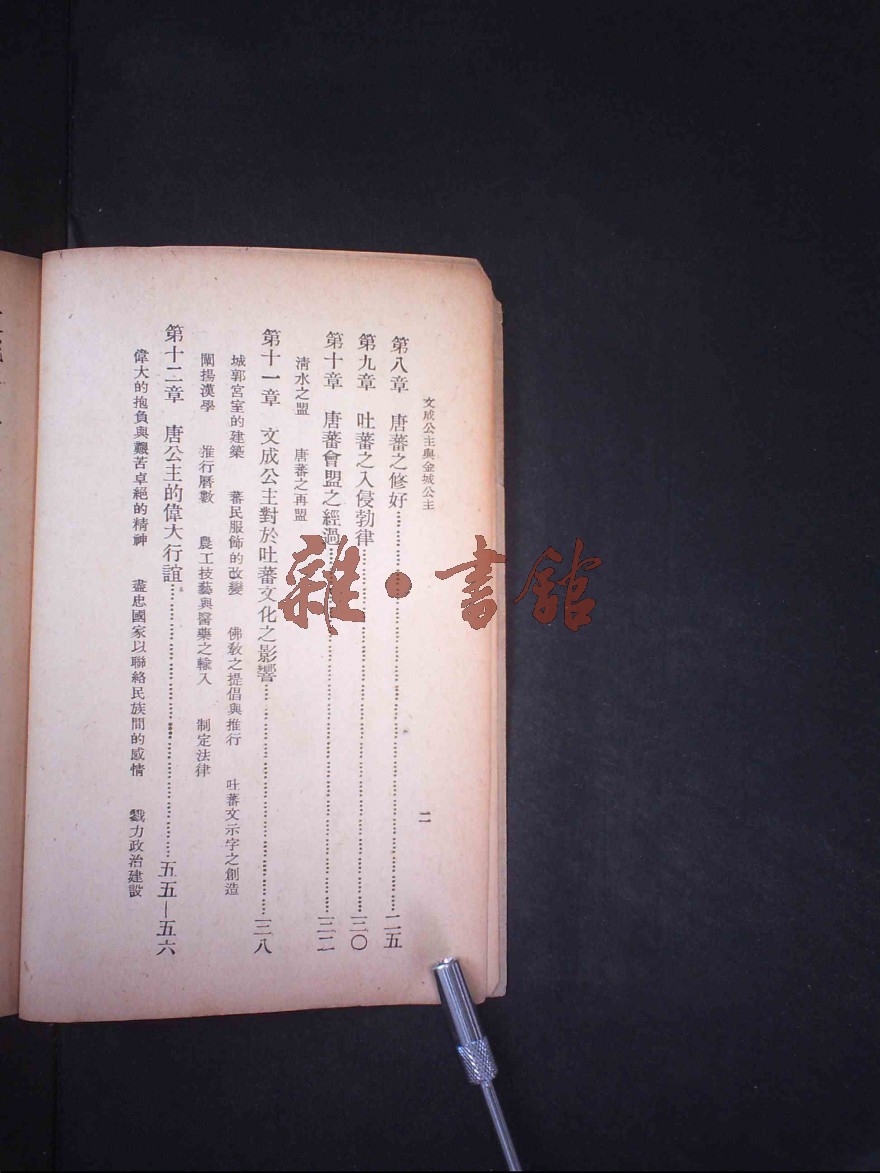 文成公主與金城公主
二
第八章　唐蕃之修好……二五
第九章　吐蕃之入侵勃律……三〇
第十章　唐蕃會盟之經過……三二
清水之盟　唐蕃之再盟
第十一章　文成公主對於吐蕃文化之影響……三八
城郭宮室的建築　蕃民服飾的改變　佛教之提倡與推行　吐蕃文示字之創造
闡揚漢學　推行曆數　農工技藝與醫藥之輸入　制定法律
第十二章　唐公主的偉大行誼……五五—五六
偉大的抱負與艱苦卓絕的精神　盡忠國家以聯絡民族間的感情　戮力政治建設
雜·書館